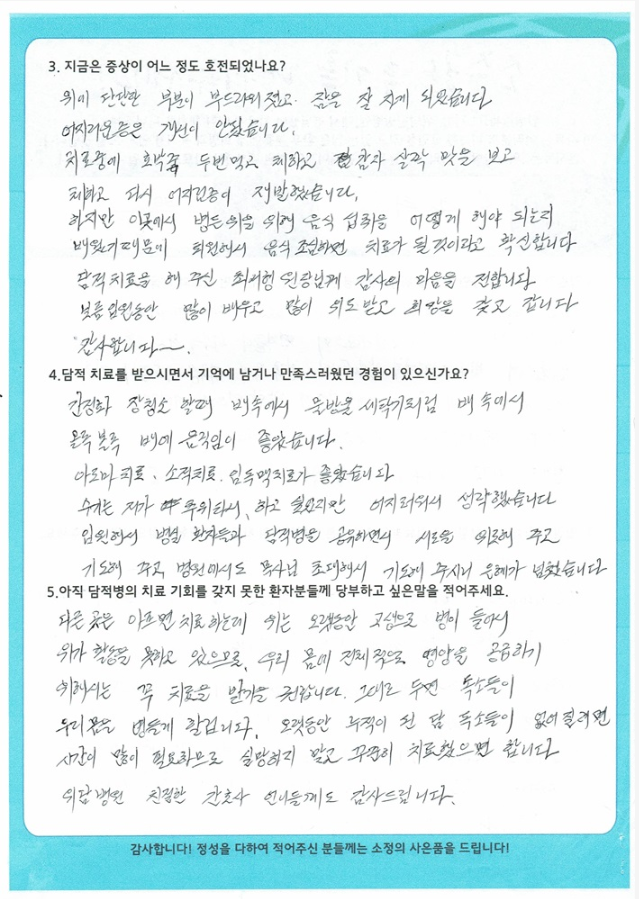 3. 지금은 증상이 어느 정도 호전되었나요?
위에 단단한 부분이 부드러워졌고 잠을 잘 자게 되었습니다
어지러운증은 개선이 안됐습니다.
치료중에 호박죽 두번먹고 체하고 감자 살짝 맛을 보고
체하고 다시 어지런증이 재발했습니다.
하지만 이곳에서 병든위를 위해 음식 섭취를 어떻게 해야 되는지
배웠기때문에 퇴원해서 음식조심하면 치료가 될것이라고 확신합니다
담적치료을 해 주신 원장님께 감사의 마음을 전합니다
보름입원동안 많이 배우고 많이 위로받고 희망을 갖고 갑니다
감사합니다~.
4.담적 치료를 받으시면서 기억에 남거나 만족스러웠던 경험이 있으신가요?
간정화 장청소 할때 배속에서 세탁기처럼 배 속에서
올록볼록 배에 움직임이 좋았습니다.
아로마치료, 소적치료. 임독맥치료가 좋았습니다
수기는 저가 하고 싶었지만 어지러워서 생략했습니다
입원해서 병실 환자들과 담적병을 공유하면서 서로을 위로해 주고
기도해 주고, 병원에서도 목사님 초대해서 기도해 주시니 은혜가 넘쳤습니다
5.아직 담적병의 치료 기회를 갖지 못한 환자분들께 당부하고 싶은말을 적어주세요.
다른 곳은 아프면 치료하는데 위는 오랫동안 고생으로 병이 들어서
위가 활동을 못하고 있으므로, 우리 몸에 전체적으로 영양을 공급하기
위해서는 꼭 치료을 받기을 권합니다. 그대로 두면 독소들이
우리몸을 병들게 할겁니다. 오랫동안 누적이 된 담 독소들이 없어질려면
시간이 많이 필요하므로 실망하지 말고 꾸준히 치료했으면 합니다
위담병원 친절한 간호사 언니들께도 감사드립니다.
감사합니다! 정성을 다하여 적어주신 분들께는 소정의 사은품을 드립니다!